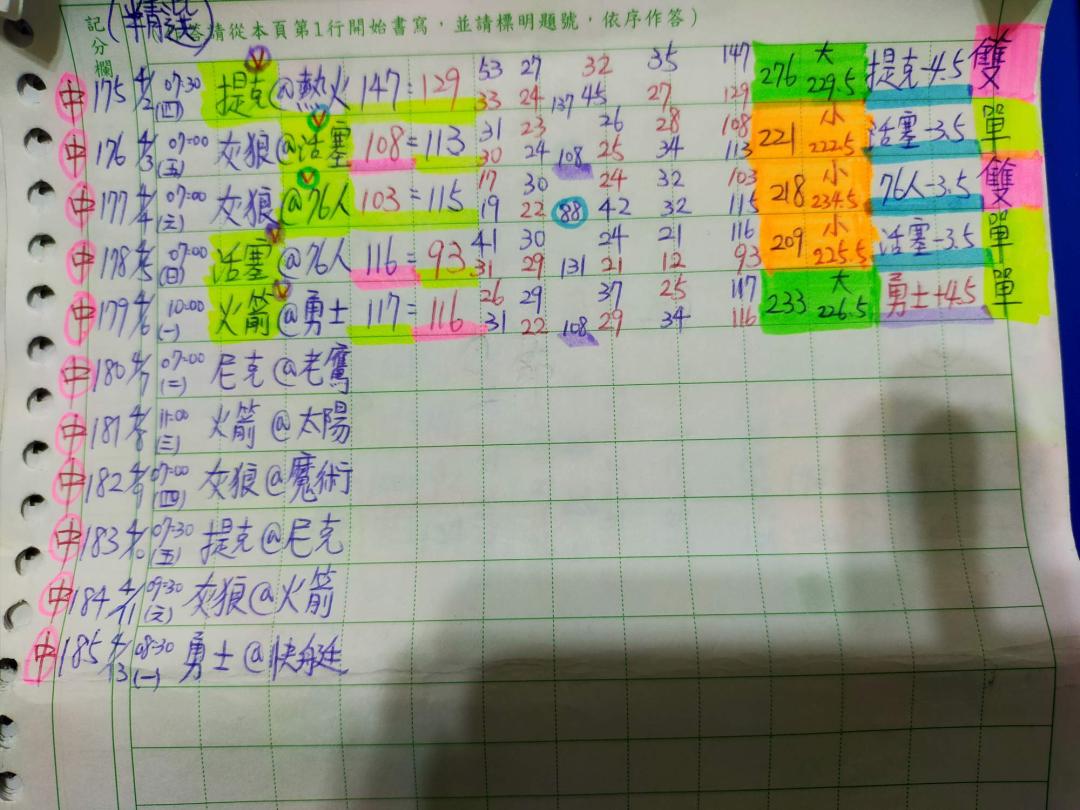 (精選)
記分欄 作答請從本頁第1行開始書寫，並請標明題號，依序作答)
中 175 4/2 07:30 (四) 提克@熱火 147=129 53 27 32 35 147 276 大 229.5 提克-4.5 雙
33 24 137 45 27 129
中 176 4/3 07:00 (五) 灰狼@活塞 108=113 31 23 26 28 108 221 小 222.5 活塞-3.5 單
30 24 108 25 34 113
中 177 4/4 07:00 灰狼@76人 103=115 17 30 24 32 103 218 小 234.5 76人-3.5 雙
19 22 88 42 32 115
中 178 4/5 07:00 (日) 活塞@76人 116=93 41 30 24 21 116 209 小 225.5 活塞-3.5 單
31 29 131 21 12 93
中 179 4/6 10:00 (一) 火箭@勇士 117=116 26 29 37 25 117 233 大 226.5 勇士+4.5 單
31 22 108 29 34 116
中 180 4/7 07:00 (二) 尼克@老鷹
中 181 4/8 11:00 (三) 火箭@太陽
中 182 4/9 07:00 (四) 灰狼@魔術
中 183 4/10 07:30 (五) 提克@尼克
中 184 4/11 09:30 灰狼@火箭
中 185 4/13 08:30 (一) 勇士@快艇